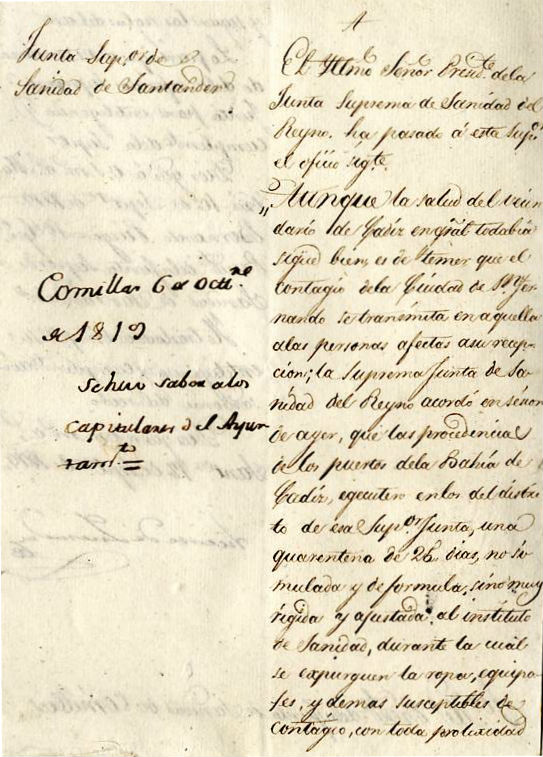 Junta Sup.or de
Sanidad de Santander
Comillas 6 de Octt.re
de 1819
se hizo saber a los
Capitulares del Ayun
tam.to =
El Yltmo Señor Presid.te de la
Junta Suprema de Sanidad del
Reyno, ha pasado á esta Sup.or
el oficio sig.te
" Aunque la salud del vecin
dario de Cadiz en gral todabia
sigue bien, es de temer que el
contagio de la Ciudad de Sn Fer
nando se transmita en aquella
a las personas afectas a su recep
cion; la Suprema Junta de Sa
nidad del Reyno acordó en sesion
de ayer, que las procedencias
de los puertos de la Bahia de
Cadiz, egecuten en los del distri
to de esa Sup.or Junta, una
quarentena de 26 dias, no si
mulada y de formula, sino muy
rigida y ajustada al instituto
de Sanidad, durante la cual
se expurguen la ropa, equipa
jes, y demas susceptibles de
contagio, con toda prolixidad